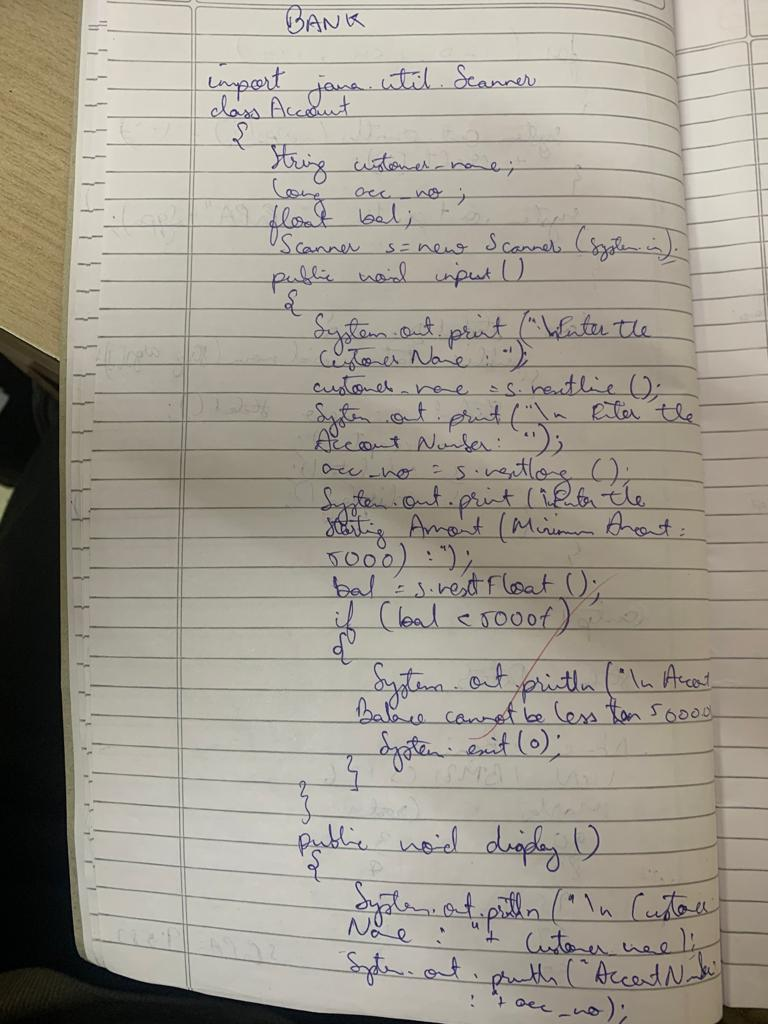 BANK
import java.util.Scanner
class Account
{
String customer_name;
long acc_no;
float bal;
Scanner s=new Scanner (System.in);
public void input()
{
System.out.print ("\nEnter the
Customer Name : ");
customer_name = s.nextline ();
System.out.print ("\n Enter the
Account Number: ");
acc_no = s.nextlong ();
System.out.print ("Enter the
Starting Amount (Minimum Amount:
5000) : ");
bal = s.nextFloat ();
if (bal < 5000f)
{
System.out.println ("\n Account
Balance cannot be less than 50000
System.exit(0);
}
}
public void display()
{
System.out.println ("\n Customer
Name : "+ customer_name);
System.out.println ("Account Number
: "+ acc_no);